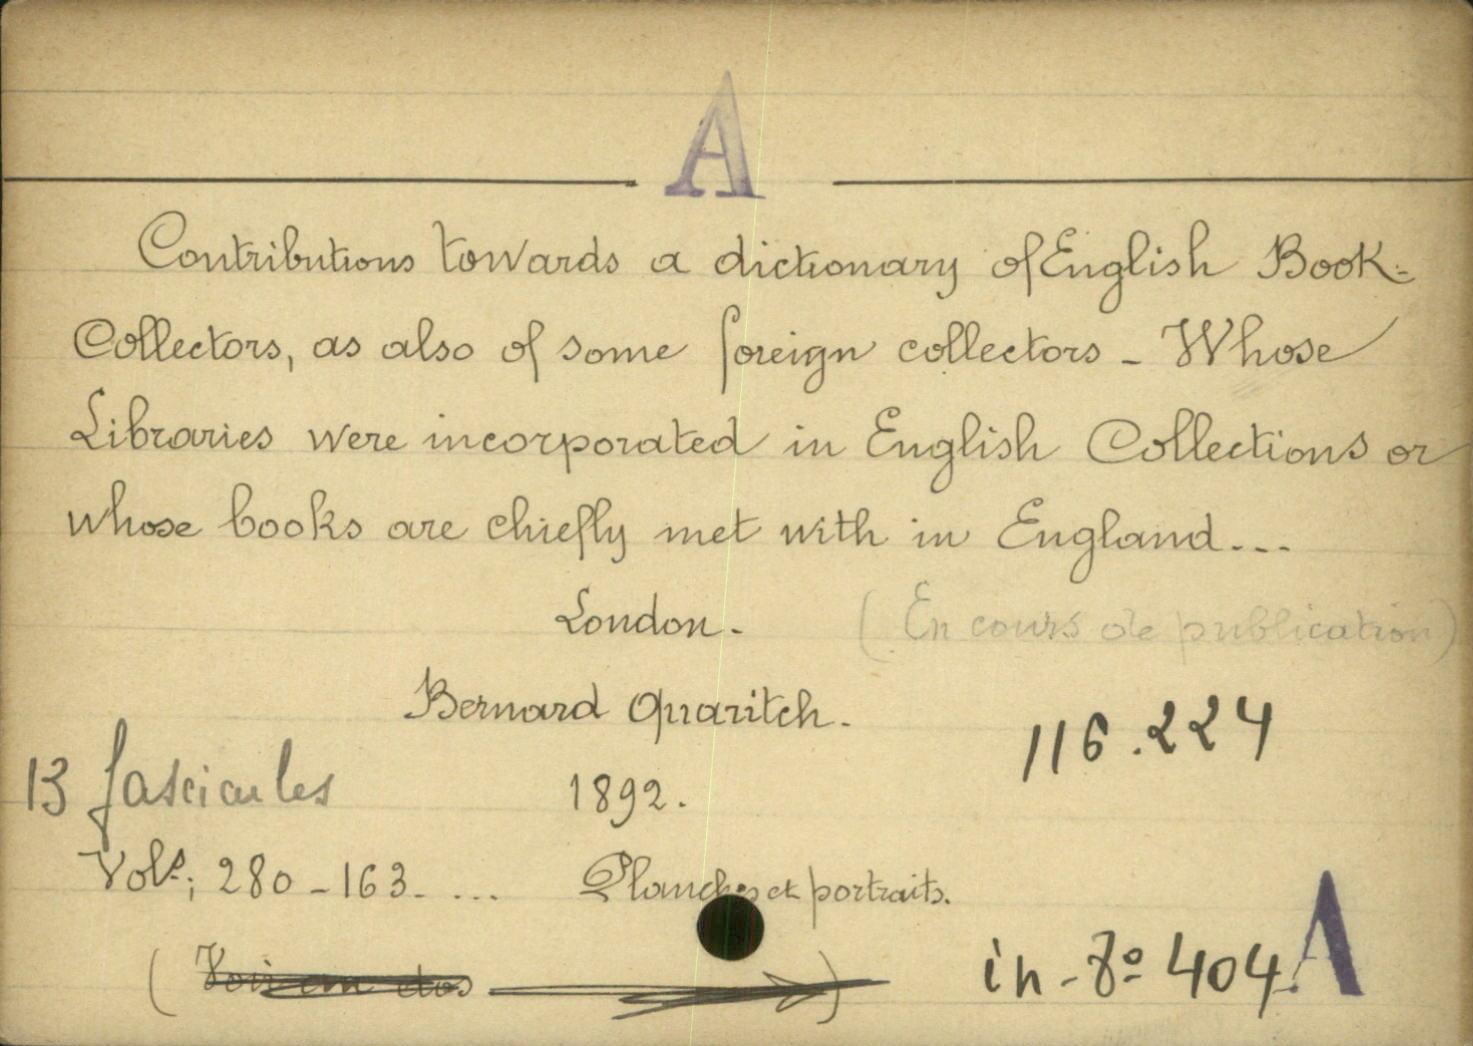 A
Contributions towards a dictionary of English Book-
Collectors, as also of some foreign collectors - Whose
Libraries were incorporated in English Collections or
whose books are chiefly met with in England...
London. (En cours de publication)
Bernard Quaritch.
116.224
13 fascicules 1892.
Vols; 280-163.... Planches et portraits.
(Voir au dos)
in-8º 404 A